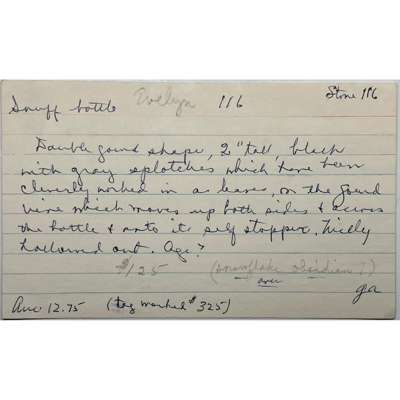 Snuff bottle Evelyn 116 Stone 116
Double gourd shape, 2" tall, black
with gray splotches which have been
cleverly worked in as leaves, on the gourd
vine which moves up both sides & across
the bottle & onto its self stopper. Nicely
hollowed out. Age?
$125 (snowflake obsidian?)
over
ga
12.75 (tag marked $325)